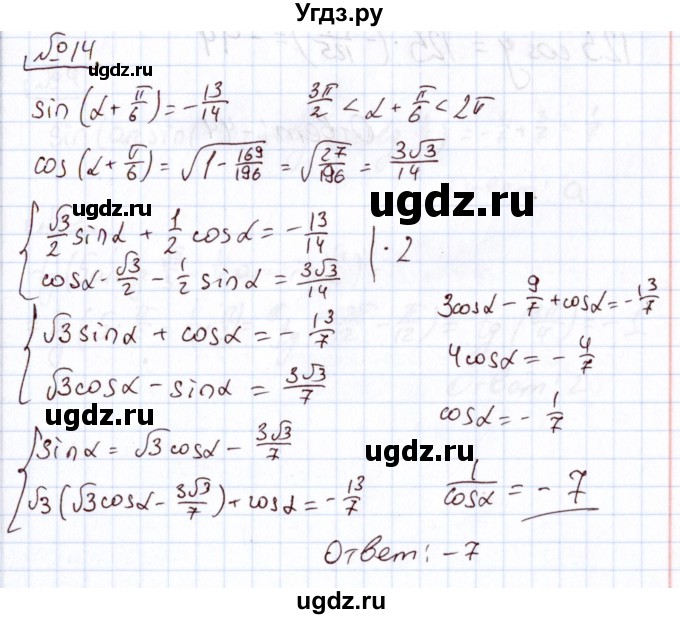 Угдз.ру
№014.
ugdz.ru
sin(α+π/6) = -13/14    3π/2 < α+π/6 < 2π
cos(α+π/6) = √(1-169/196) = √(27/196) = 3√3/14
ugdz.ru ugdz.ru
{ √3/2 sinα + 1/2 cosα = -13/14
cosα·√3/2 - 1/2 sinα = 3√3/14    |·2
{ √3 sinα + cosα = -13/7
√3cosα - sinα = 3√3/7
ugdz.ru
{ sinα = √3cosα - 3√3/7
√3(√3cosα - 3√3/7) + cosα = -13/7
3cosα - 9/7 + cosα = -13/7
4cosα = -4/7
cosα = -1/7
ugdz.ru
1/cosα = -7
Ответ: -7
ugdz.ru
ugdz.ru